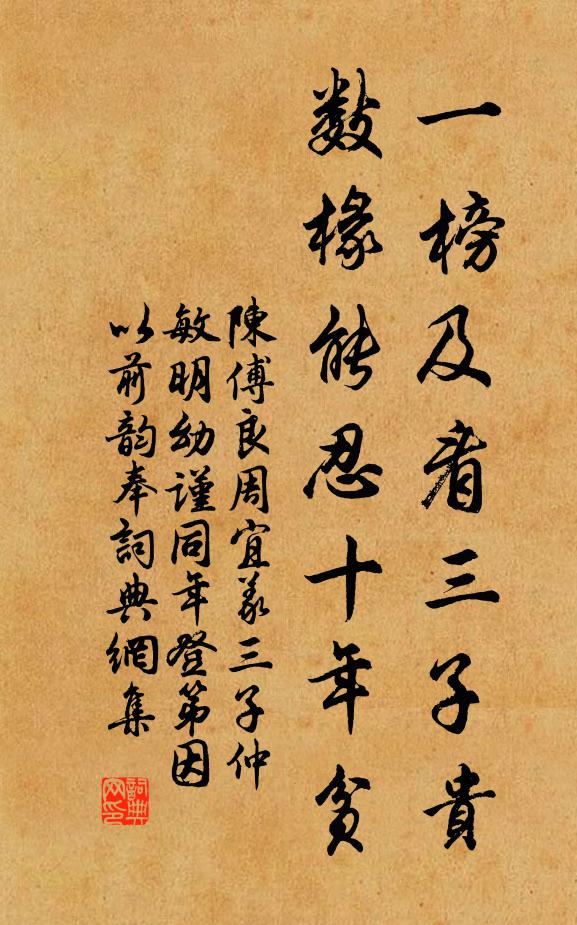 一榜及看三子貴
數椽能忍十年貧
陳傅良周宜義三子仲
敏明幼謹同年登第因
以前韵奉詞典網集
詞典网印